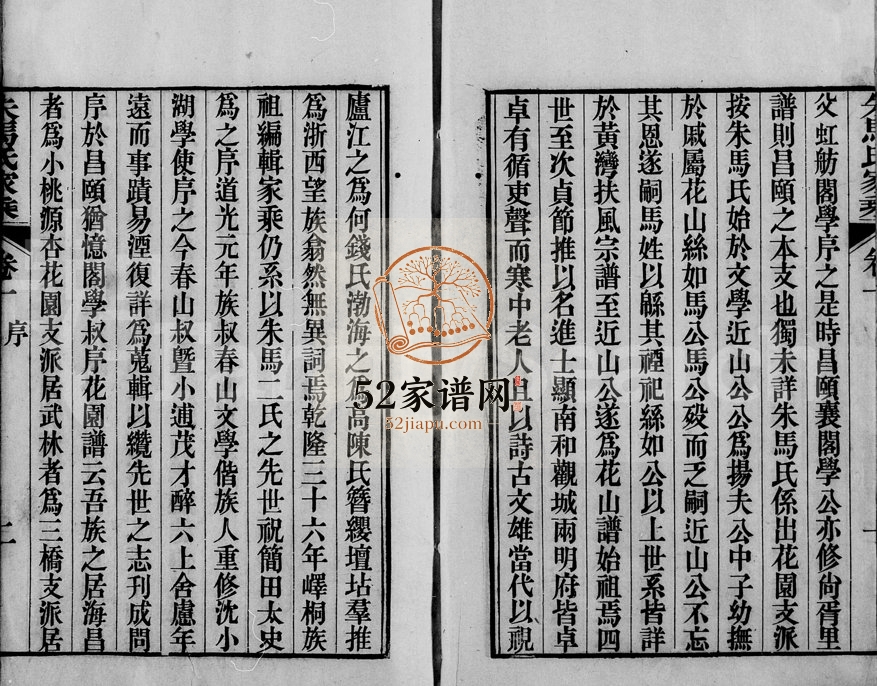 廬江之爲何錢氏渤海之爲高陳氏簪纓壇坫羣推
爲浙西望族翕然無異詞焉乾隆三十六年嶧桐族
祖編輯家乘仍系以朱馬二氏之先世祝簡田太史
爲之序道光元年族叔春山文學偕族人重修沈小
湖學使序之今春山叔曁小逋茂才醉六上舍慮年
遠而事蹟易湮復詳爲蒐輯以纘先世之志刊成問
序於昌頤猶憶閣學叔序花園譜云吾族之居海昌
者爲小桃源杏花園支派居武林者爲三橋支派居
馬氏家乘
卷一
序
二
馬氏家乘
卷一
父虹舫閣學序之是時昌頤襄閣學公亦修尙胥里
譜則昌頤之本支也獨未詳朱馬氏係出花園支派
按朱馬氏始於文學近山公公爲揚夫公中子幼撫
於戚屬花山絲如馬公馬公歿而乏嗣近山公不忘
其恩遂嗣馬姓以緜其禋祀絲如公以上世系皆詳
於黃灣扶風宗譜至近山公遂爲花山譜始祖焉四
世至次貞節推以名進士顯南和觀城兩明府皆卓
卓有循吏聲而寒中老人且以詩古文雄當代以視
52家谱网
52jiapu.com